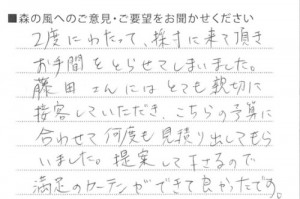 ■森の風へのご意見・ご要望をお聞かせください
2度にわたって、採寸に来て頂き
お手間をとらせてしまいました。
藤田さんにはとても親切に
接客していただき、こちらの予算に
合わせて何度も見積り出してもら
いました。提案して下さるので
満足のカーテンができて良かったです。